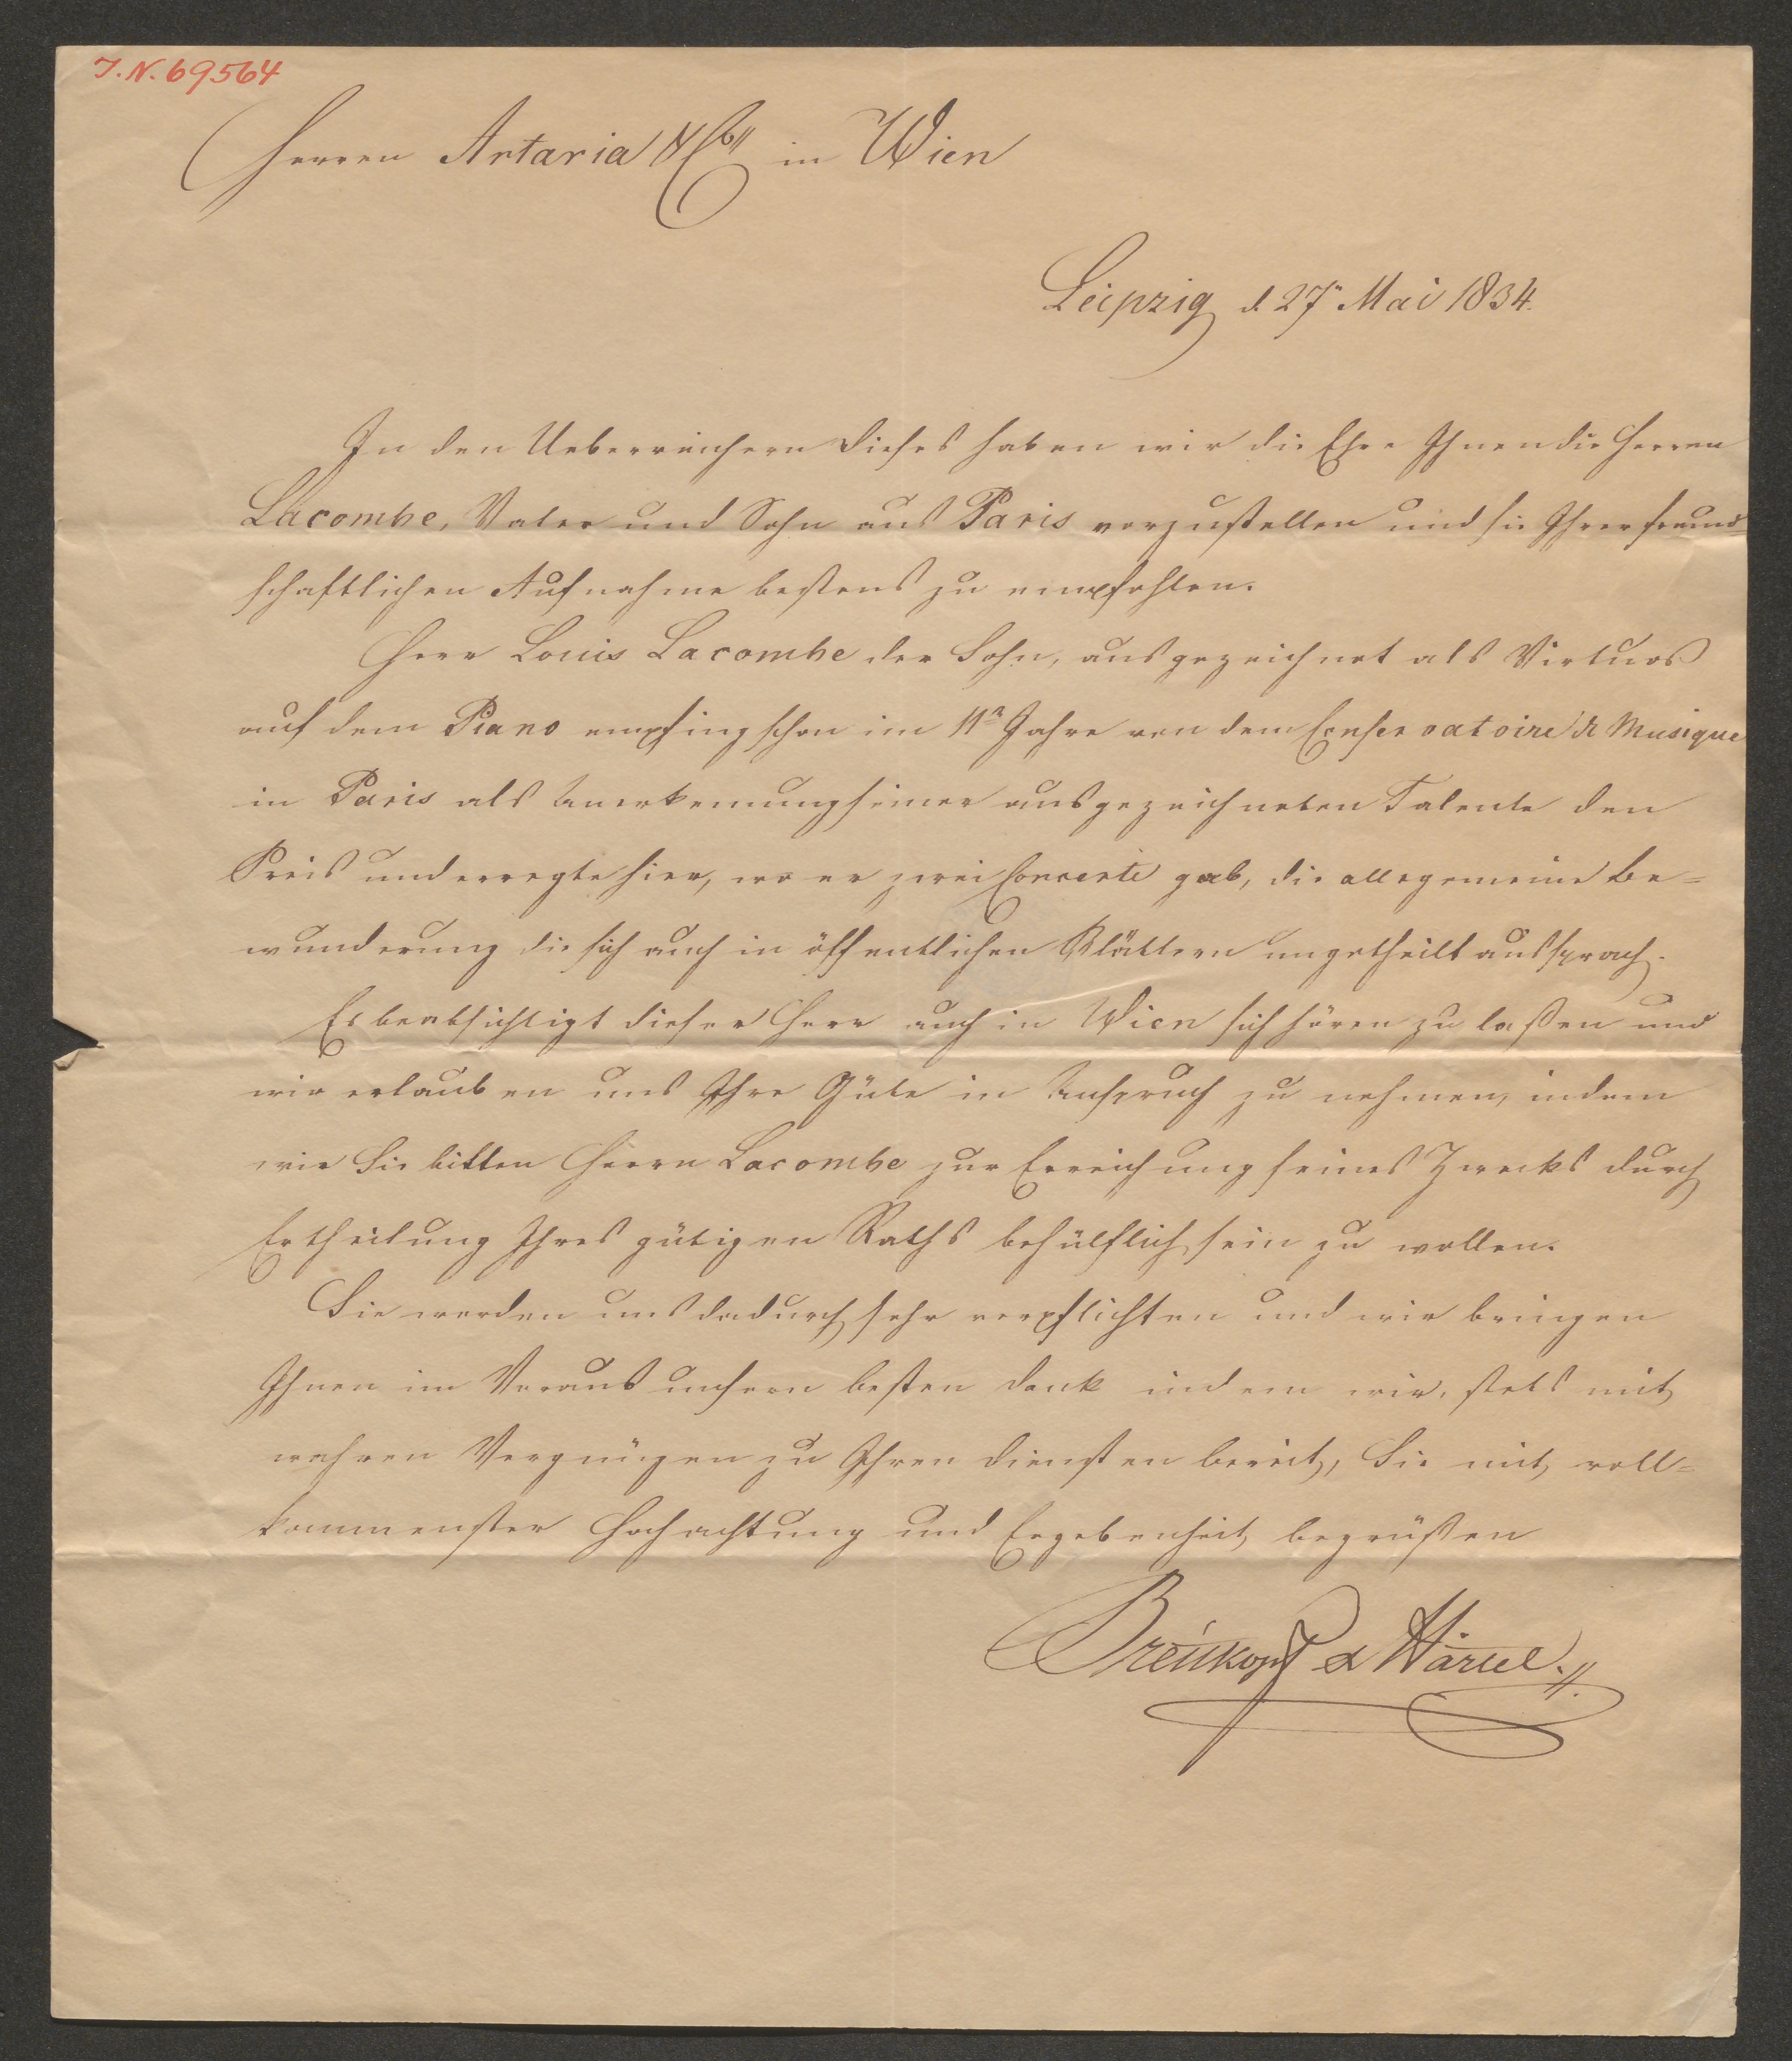 J.N. 69564
Herren Artaria & Co in Wien
Leipzig d. 27 Mai 1834.
In den Ueberreichern dieses haben wir die Ehre Ihnen die Herren
Lacombe, Vater und Sohn aus Paris vorzustellen und sie Ihrer freund-
schaftlichen Aufnahme bestens zu empfehlen.
Herr Louis Lacombe der Sohn, ausgezeichnet als Virtuos
auf dem Piano empfing schon im 11n Jahre von dem Conservatoire de Musique
in Paris als Anerkennung seiner ausgezeichneten Talente den
Preis und erregte hier, wo er zwei Concerte gab, die allgemeine Be=
wunderung die sich auch in öffentlichen Blättern ungetheilt aussprach.
Es beabsichtigt dieser Herr auch in Wien sich hören zu laßen und
wir erlauben uns Ihre Güte in Anspruch zu nehmen, indem
wir Sie bitten Herrn Lacombe zur Erreichung seines Zwecks durch
Ertheilung Ihres gütigen Raths behülflich sein zu wollen.
Sie werden uns dadurch sehr verpflichten und wir bringen
Ihnen im Voraus unsern besten Dank indem wir, stets mit
wahren Vergnügen zu Ihren Diensten bereit, Sie mit voll=
kommenster Hochachtung und Ergebenheit begrüßen
Breitkopf & Härtel.